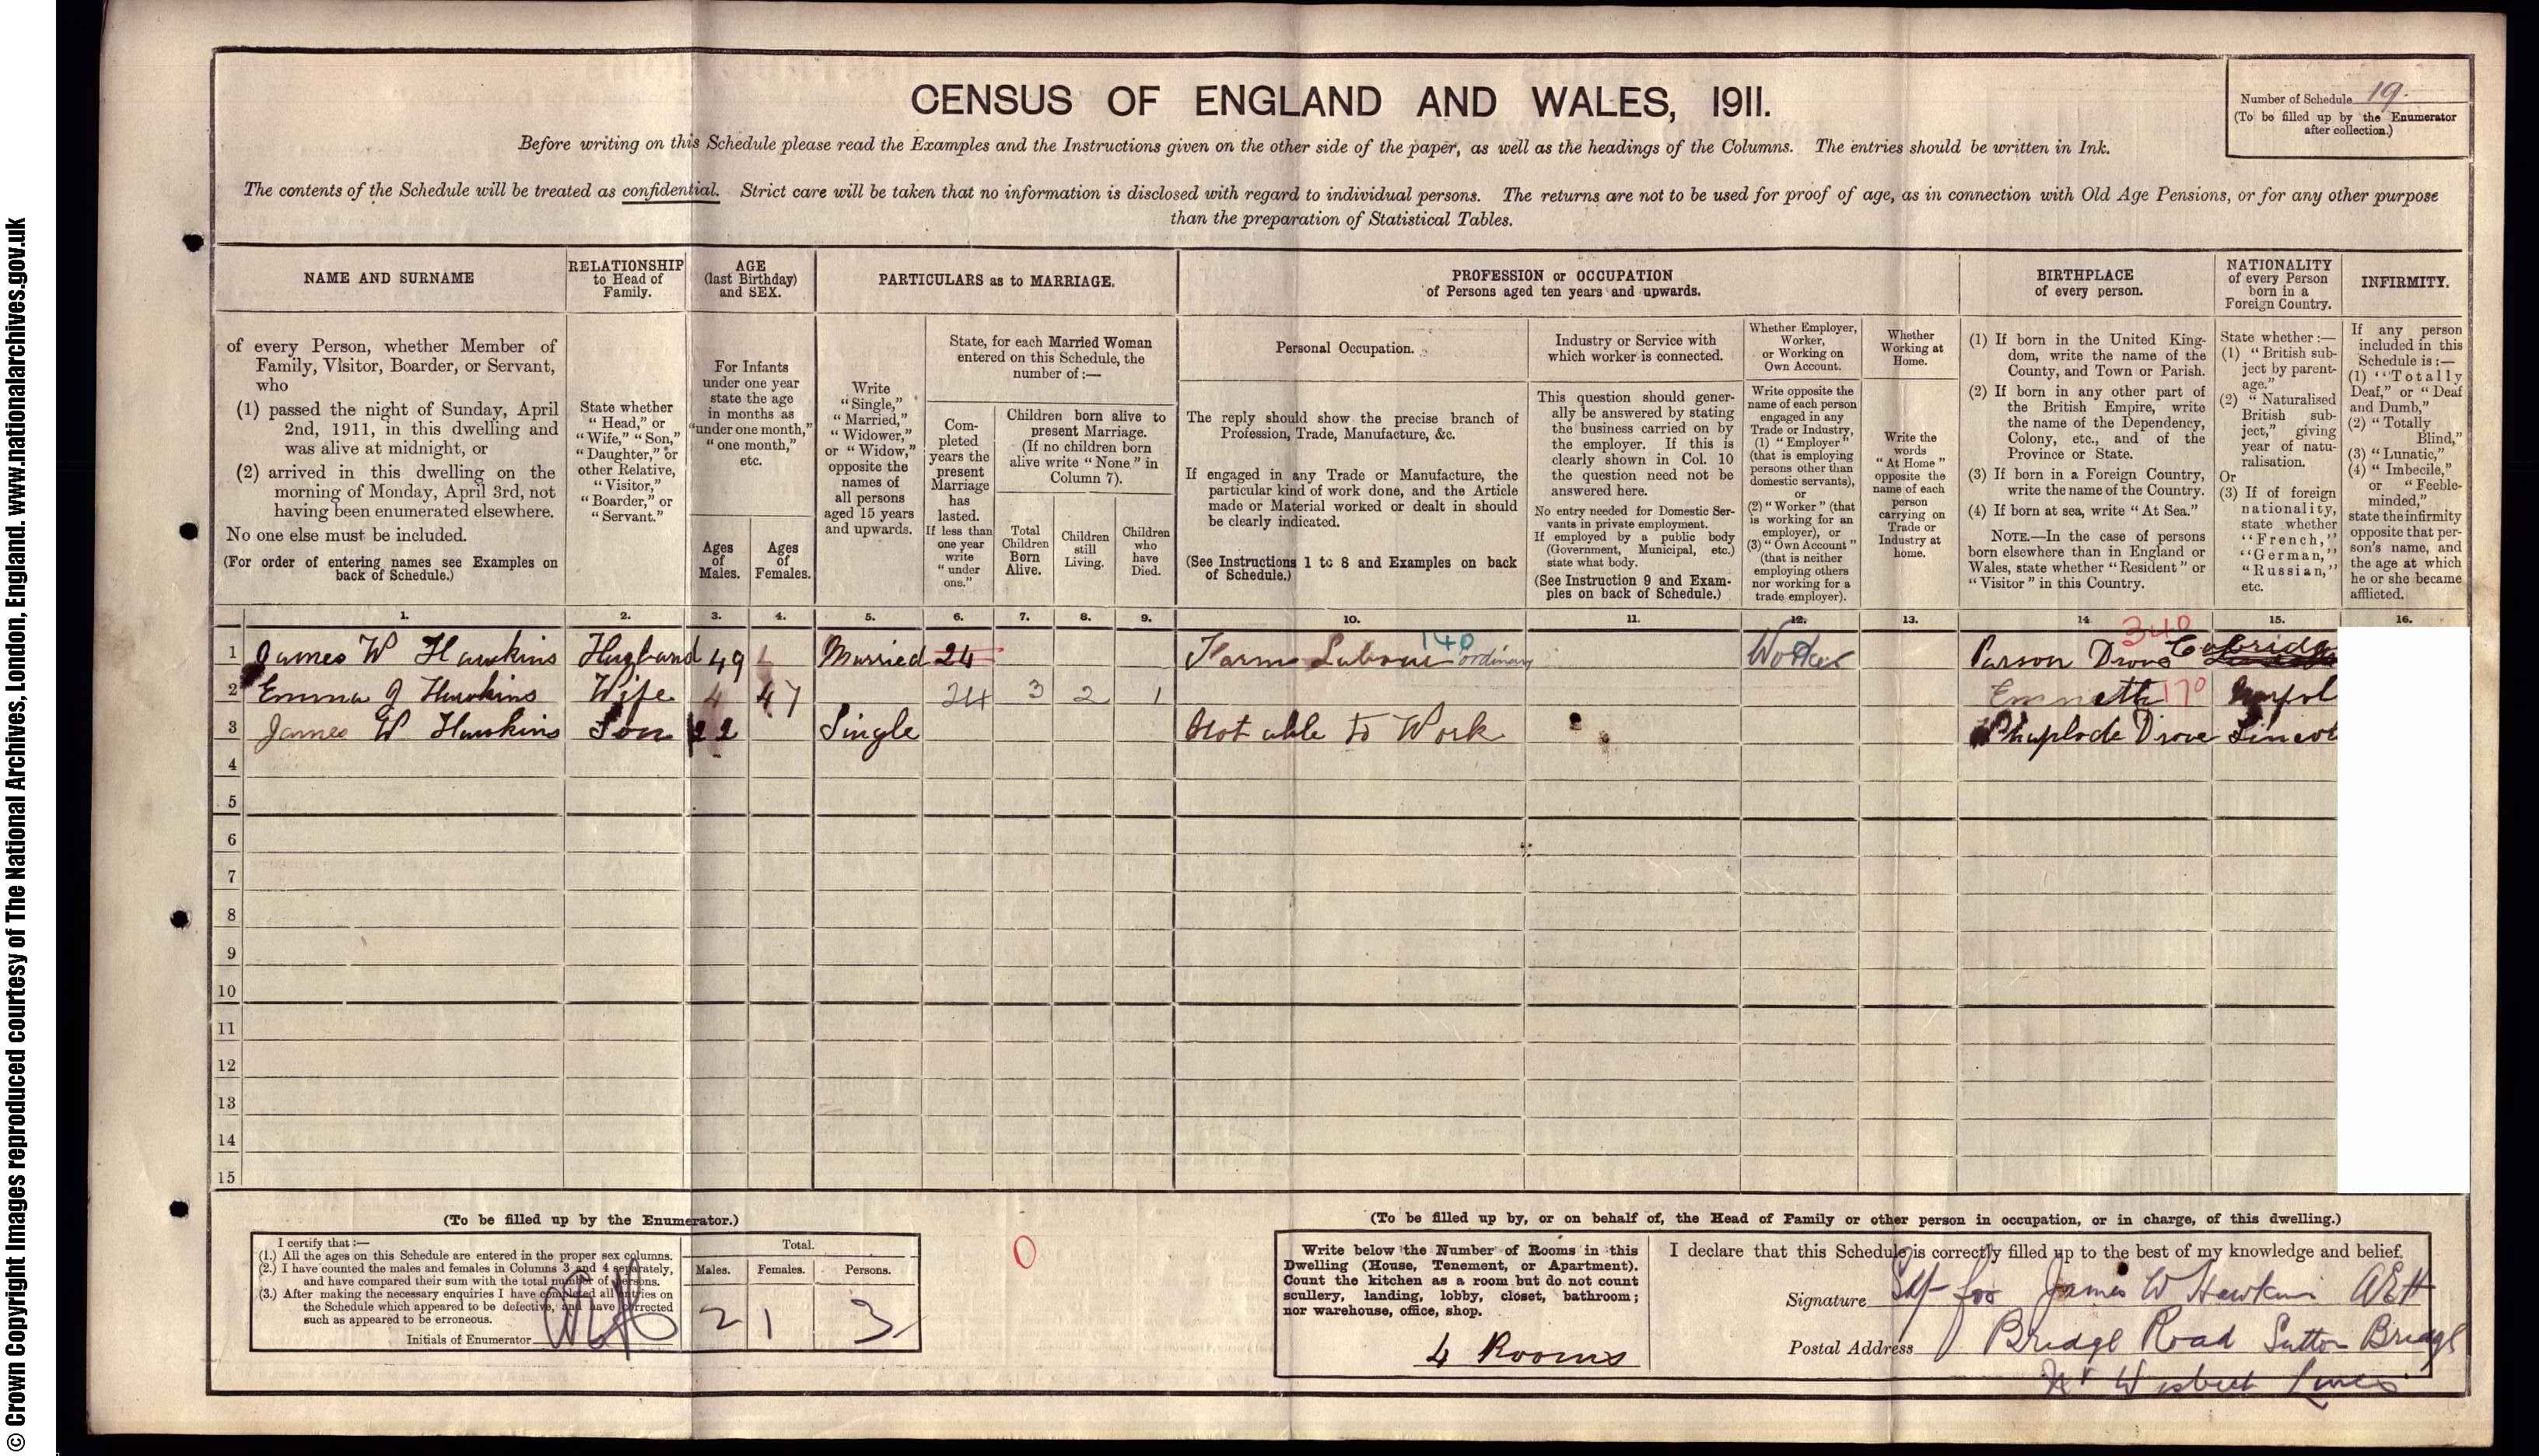 © Crown Copyright Images reproduced courtesy of The National Archives, London, England. www.nationalarchives.gov.uk
CENSUS OF ENGLAND AND WALES, 1911.
Number of Schedule 19.
(To be filled up by the Enumerator
after collection.)
Before writing on this Schedule please read the Examples and the Instructions given on the other side of the paper, as well as the headings of the Columns. The entries should be written in Ink.
The contents of the Schedule will be treated as confidential. Strict care will be taken that no information is disclosed with regard to individual persons. The returns are not to be used for proof of age, as in connection with Old Age Pensions, or for any other purpose
than the preparation of Statistical Tables.
NAME AND SURNAME
RELATIONSHIP
to Head of
Family.
AGE
(last Birthday)
and SEX.
PARTICULARS as to MARRIAGE.
PROFESSION or OCCUPATION
of Persons aged ten years and upwards.
BIRTHPLACE
of every person.
NATIONALITY
of every Person
born in a
Foreign Country.
INFIRMITY.
of every Person, whether Member of
Family, Visitor, Boarder, or Servant,
who
(1) passed the night of Sunday, April
2nd, 1911, in this dwelling and
was alive at midnight, or
(2) arrived in this dwelling on the
morning of Monday, April 3rd, not
having been enumerated elsewhere.
No one else must be included.
(For order of entering names see Examples on
back of Schedule.)
State whether
"Head," or
"Wife," "Son,"
"Daughter," or
other Relative,
"Visitor,"
"Boarder," or
"Servant."
For Infants
under one year
state the age
in months as
"under one month,"
"one month,"
etc.
Ages
of
Males.
Ages
of
Females.
Write
"Single,"
"Married,"
"Widower,"
or "Widow,"
opposite the
names of
all persons
aged 15 years
and upwards.
State, for each Married Woman
entered on this Schedule, the
number of:—
Com-
pleted
years the
present
Marriage
has
lasted.
If less than
one year
write
"under
one."
Children born alive to
present Marriage.
(If no children born
alive write "None" in
Column 7).
Total
Children
Born
Alive.
Children
still
Living.
Children
who
have
Died.
Personal Occupation.
The reply should show the precise branch of
Profession, Trade, Manufacture, &c.
If engaged in any Trade or Manufacture, the
particular kind of work done, and the Article
made or Material worked or dealt in should
be clearly indicated.
(See Instructions 1 to 8 and Examples on back
of Schedule.)
Industry or Service with
which worker is connected.
This question should gener-
ally be answered by stating
the business carried on by
the employer. If this is
clearly shown in Col. 10
the question need not be
answered here.
No entry needed for Domestic Ser-
vants in private employment.
If employed by a public body
(Government, Municipal, etc.)
state what body.
(See Instruction 9 and Exam-
ples on back of Schedule.)
Whether Employer,
Worker,
or Working on
Own Account.
Write opposite the
name of each person
engaged in any
Trade or Industry,
(1) "Employer"
(that is employing
persons other than
domestic servants),
or
(2) "Worker" (that
is working for an
employer), or
(3) "Own Account"
(that is neither
employing others
nor working for a
trade employer).
Whether
Working at
Home.
Write the
words
"At Home"
opposite the
name of each
person
carrying on
Trade or
Industry at
home.
(1) If born in the United King-
dom, write the name of the
County, and Town or Parish.
(2) If born in any other part of
the British Empire, write
the name of the Dependency,
Colony, etc., and of the
Province or State.
(3) If born in a Foreign Country,
write the name of the Country.
(4) If born at sea, write "At Sea."
NOTE.—In the case of persons
born elsewhere than in England or
Wales, state whether "Resident" or
"Visitor" in this Country.
State whether:—
(1) "British sub-
ject by parent-
age."
(2) "Naturalised
British sub-
ject," giving
year of natu-
ralisation.
Or
(3) If of foreign
nationality,
state whether
"French,"
"German,"
"Russian,"
etc.
If any person
included in this
Schedule is:—
(1) "Totally
Deaf," or "Deaf
and Dumb,"
(2) "Totally
Blind,"
(3) "Lunatic,"
(4) "Imbecile,"
or "Feeble-
minded,"
state the infirmity
opposite that per-
son's name, and
the age at which
he or she became
afflicted.
1. 2. 3. 4. 5. 6. 7. 8. 9. 10. 11. 12. 13. 14 15. 16.
1 James W Hawkins Husband 49 Married 24 Farm Labour 140 ordinary Worker Parson Drove 340
2 Emma J Hawkins Wife 47 24 3 2 1 Emneth 170 Norfol
3 James W Hawkins Son 22 Single Not able to Work Whaplode Drove Lincol
4
5
6
7
8
9
10
11
12
13
14
15
(To be filled up by the Enumerator.)
I certify that:—
(1.) All the ages on this Schedule are entered in the proper sex columns.
(2.) I have counted the males and females in Columns 3 and 4 separately,
and have compared their sum with the total number of persons.
(3.) After making the necessary enquiries I have completed all entries on
the Schedule which appeared to be defective, and have corrected
such as appeared to be erroneous.
Initials of Enumerator
Total.
Males. Females. Persons.
2 1 3
0
(To be filled up by, or on behalf of, the Head of Family or other person in occupation, or in charge, of this dwelling.)
Write below the Number of Rooms in this
Dwelling (House, Tenement, or Apartment).
Count the kitchen as a room but do not count
scullery, landing, lobby, closet, bathroom;
nor warehouse, office, shop.
4 Rooms
I declare that this Schedule is correctly filled up to the best of my knowledge and belief.
Signature for James W Hawkins
Postal Address Bridge Road Sutton Bridge
Nr Wisbech Lincs